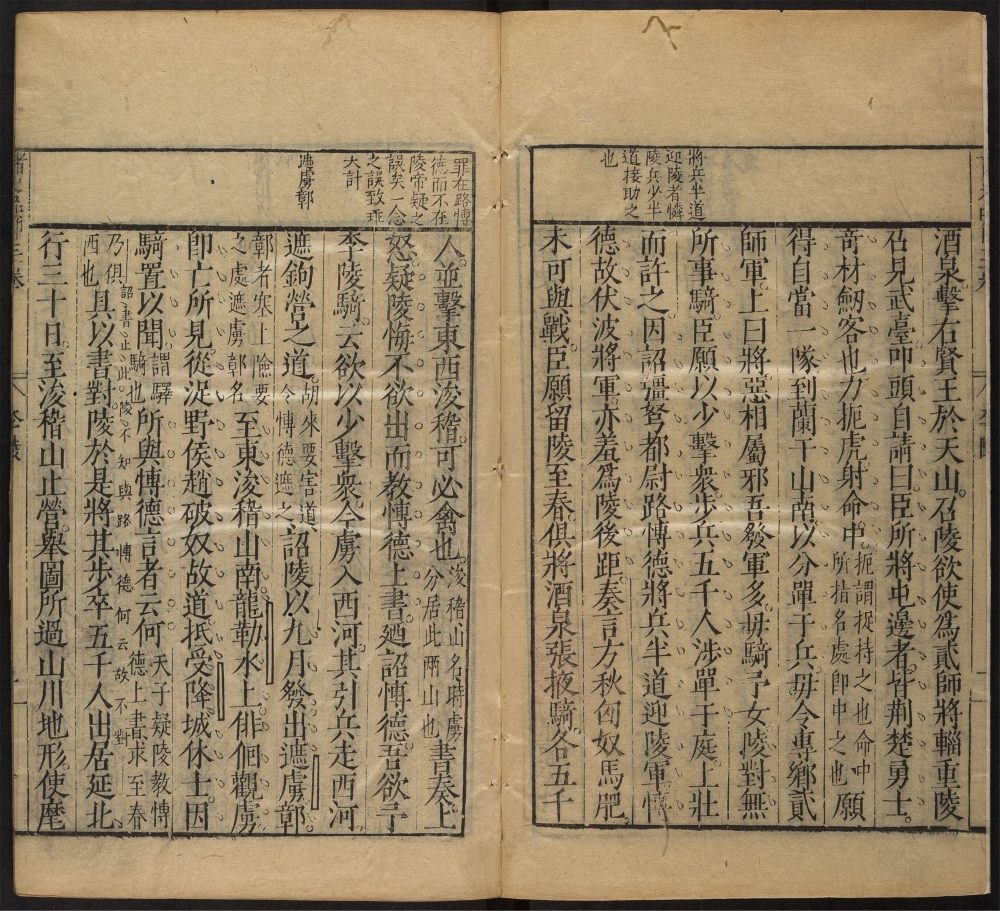 將兵半道
迎陵者憐
陵兵少半
道接助之
也
酒泉擊右賢王於天山召陵欲使爲貳師將輜重陵
召見武臺叩頭自請曰臣所將屯邊者皆荆楚勇士
奇材劒客也力扼虎射命中扼謂捉持之也命中所指名處卽中之也願
得自當一隊到蘭干山南以分單于兵毋令專鄉貳
師軍上曰將惡相屬邪吾發軍多毋騎予女陵對無
所事騎臣願以少擊衆步兵五千人涉單于庭上壯
而許之因詔彊弩都尉路愽德將兵半道迎陵軍愽
德故伏波將軍亦羞爲陵後距奏言方秋匈奴馬肥
未可與戰臣願留陵至春俱將酒泉張掖騎各五千
罪在路愽
德而不在
陵帝疑之
誤矣一念
之誤致乖
大計
遮虜鄣
人並擊東西浚稽可必禽也浚稽山名時虜分居此兩山也書奏上
怒疑陵悔不欲出而教愽德上書廼詔愽德吾欲予
李陵騎云欲以少擊衆今虜入西河其引兵走西河
遮鉤營之道胡來要害道令愽德遮之詔陵以九月發出遮虜鄣
鄣者塞上險要之處遮虜鄣名至東浚稽山南龍勒水上徘徊觀虜
卽亡所見從浞野侯趙破奴故道抵受降城休士因
騎置以聞謂驛騎也所與愽德言者云何天子疑陵教愽德上書求至春
乃俱西也詔書止此陵不知與路愽德何云故不對具以書對陵於是將其步卒五千人出居延北
行三十日至浚稽山止營舉圖所過山川地形使麾